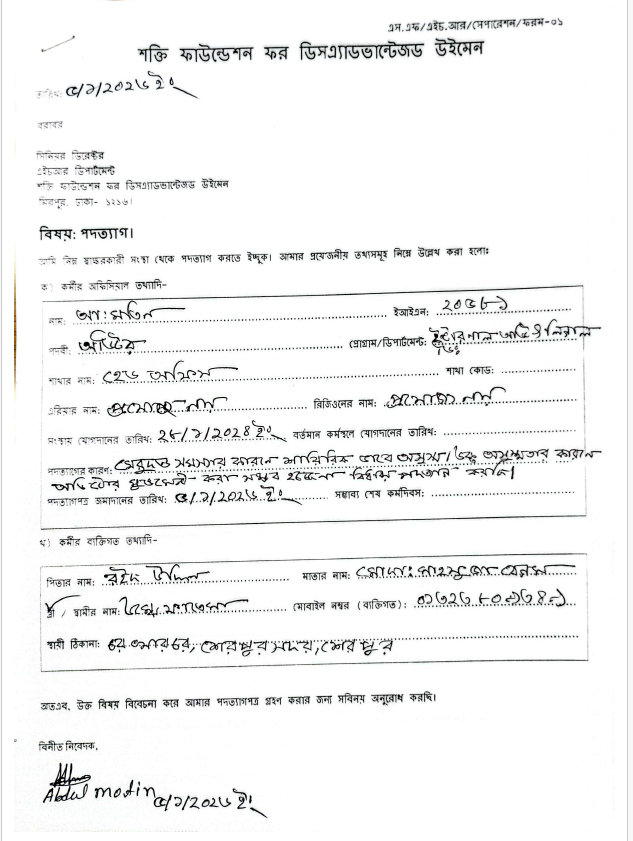 এস.এফ/এইচ.আর/সেপারেশন/ফরম-০১
শক্তি ফাউন্ডেশন ফর ডিসএ্যাডভান্টেজড উইমেন
তারিখ: ৫/১/২০২৬ ইং
বরাবর
সিনিয়র ডিরেক্টর
এইচআর ডিপার্টমেন্ট
শক্তি ফাউন্ডেশন ফর ডিসএ্যাডভান্টেজড উইমেন
মিরপুর, ঢাকা- ১২১৬।
বিষয়: পদত্যাগ।
আমি নিম্ন স্বাক্ষরকারী সংস্থা থেকে পদত্যাগ করতে ইচ্ছুক। আমার প্রয়োজনীয় তথ্যসমূহ নিম্নে উল্লেখ করা হলো:
ক) কর্মীর অফিসিয়াল তথ্যাদি-
নাম: আ: মতিন ইআইএন: ২০৫৮১
পদবী: অডিটর প্রোগ্রাম/ডিপার্টমেন্ট: ইন্টারনাল অডিট
শাখার নাম: হেড অফিস শাখা কোড:
এরিয়ার নাম: প্রযোজ্য নয় রিজিওনের নাম: প্রযোজ্য নয়
সংস্থায় যোগদানের তারিখ: ২৮/১/২০২৪ ইং বর্তমান কর্মস্থলে যোগদানের তারিখ:
পদত্যাগের কারণ: মেরুদন্ড সমস্যার কারনে শারিরিক ভাবে অসুস্থ। উক্ত অসুস্থতার কারনে
অডিটের করা সম্ভব হচ্ছেনা বিধায় পদত্যাগ করছি।
পদত্যাগপত্র জমাদানের তারিখ: ৫/১/২০২৬ ইং সম্ভাব্য শেষ কর্মদিবস:
খ) কর্মীর ব্যক্তিগত তথ্যাদি-
পিতার নাম: রইদ উদ্দিন মাতার নাম: মোসা: বেগম
স্ত্রী / স্বামীর নাম: মোবাইল নম্বর (ব্যক্তিগত):
স্থায়ী ঠিকানা: শেরপুর সদর, শেরপুর
অতএব, উক্ত বিষয় বিবেচনা করে আমার পদত্যাগপত্র গ্রহণ করার জন্য সবিনয় অনুরোধ করছি।
বিনীত নিবেদক,
Abdul motin ৫/১/২০২৬ ইং